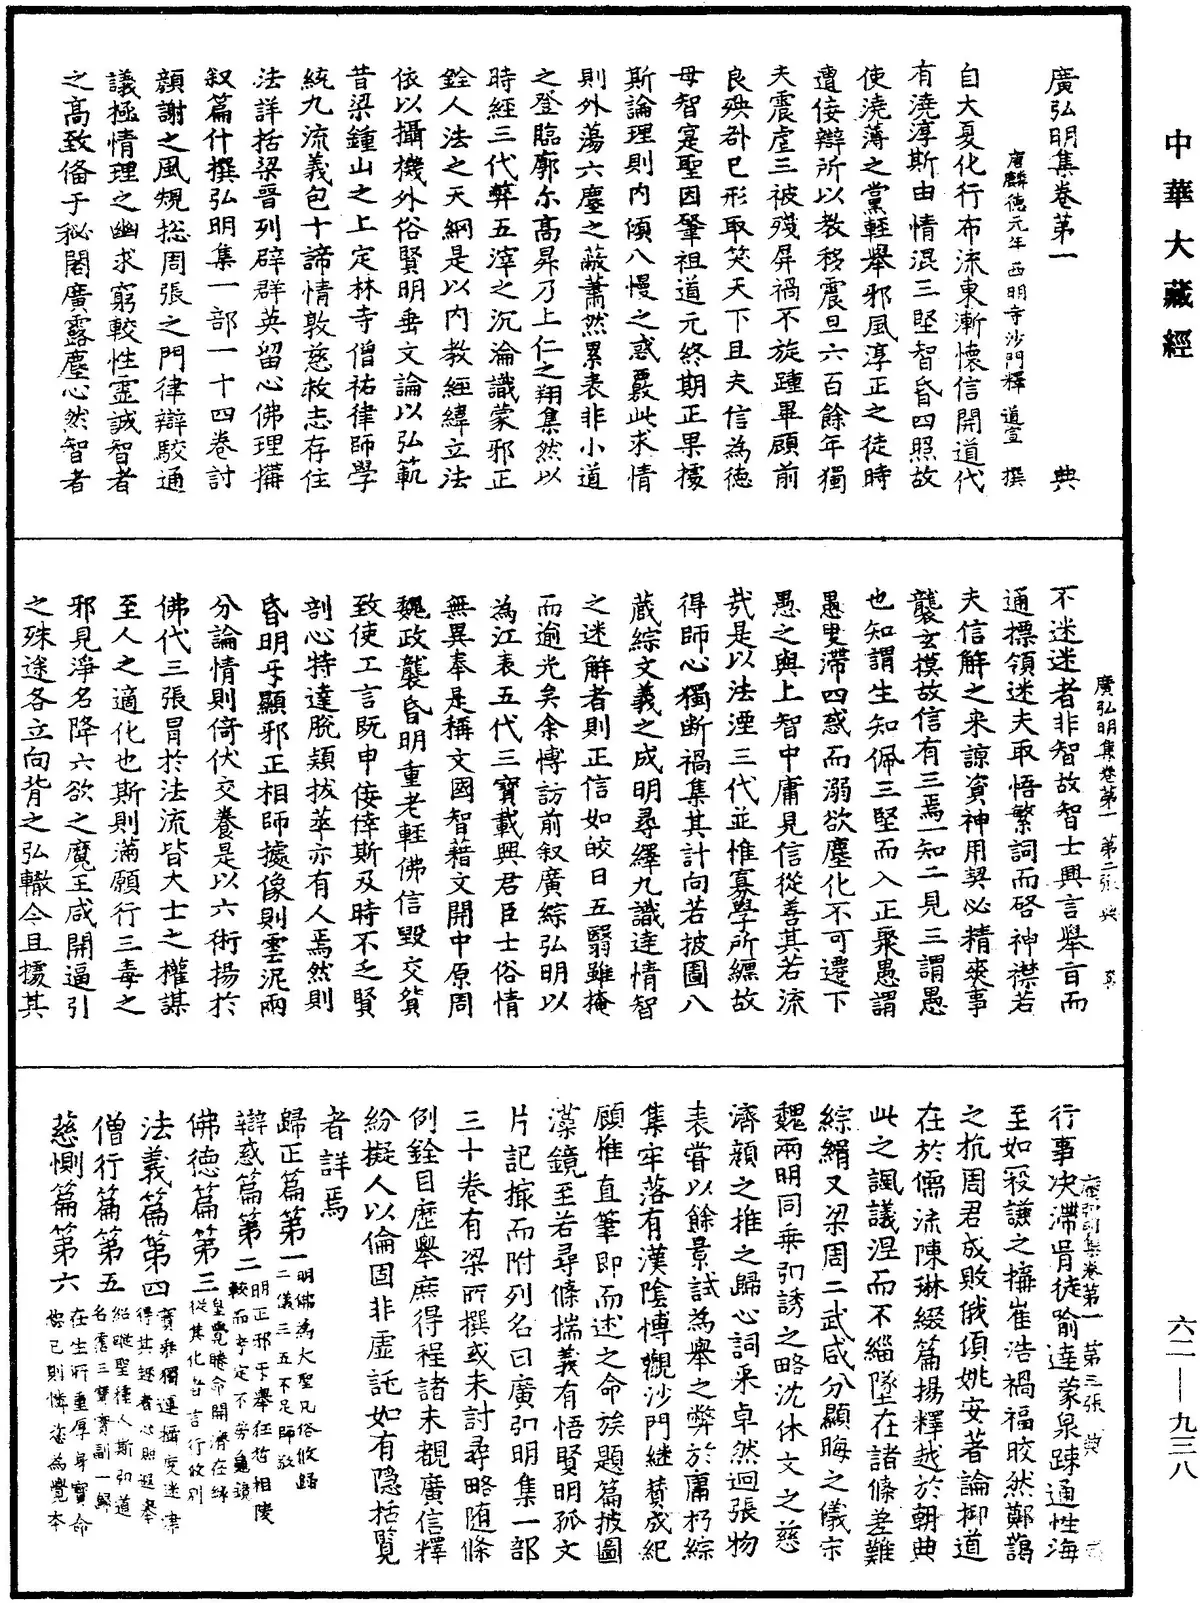 中華大藏經
廣弘明集卷第一　典
唐麟德元年西明寺沙門釋道宣　撰
自大夏化行布流東漸懷信開道代
有澆淳斯由情混三堅智昏四照故
使澆薄之黨輕舉邪風淳正之徒時
遭佞辯所以教移震旦六百餘年獨
夫震虐三被殘屏禍不旋踵畢顧前
良殃咎已形取笑天下且夫信為德
母智寔聖因肇祖道元終期正果據
斯論理則內傾八慢之惑覈此求情
則外蕩六塵之蔽蕭然累表非小道
之登臨廓尔高昇乃上仁之翔集然以
時經三代弊五滓之沉淪識蒙邪正
銓人法之天網是以內教經緯立法
依以攝機外俗賢明垂文論以弘範
昔梁鍾山之上定林寺僧祐律師學
統九流義包十諦情敦慈救志存住
法詳括梁晉列辟群英留心佛理搆
叙篇什撰弘明集一部一十四卷討
顏謝之風規捴周張之門律辯駮通
議極情理之幽求窮較性靈誠智者
之高致備于秘閣廣露塵心然智者
廣弘明集卷第一　第二張　典
不迷迷者非智故智士興言舉旨而
通標領迷夫取悟繁詞而啓神襟若
夫信解之來諒資神用契必精爽事
襲玄模故信有三焉一知二見三謂愚
也知謂生知佩三堅而入正聚愚謂
愚叟滯四惑而溺欲塵化不可遷下
愚之與上智中庸見信從善其若流
哉是以法湮三代並惟寡學所纏故
得師心獨斷禍集其計向若披圖八
藏綜文義之成明尋繹九識達情智
之迷解者則正信如皎日五翳雖掩
而逾光矣余博訪前叙廣綜弘明以
為江表五代三寶載興君臣士俗情
無異奉是稱文國智藉文開中原周
魏政襲昏明重老輕佛信毀交貿
致使工言既申佞倖斯及時不乏賢
剖心特達脫穎拔萃亦有人焉然則
昏明乎顯邪正相師據像則雲泥兩
分論情則倚伏交養是以六術揚於
佛代三張冒於法流皆大士之權謀
至人之適化也斯則滿願行三毒之
邪見淨名降六欲之魔王咸開逼引
之殊途各立向背之弘轍今且據其
廣弘明集卷第一　第三張　典
行事決滯胥徒喻達蒙泉踈通性海
至如寇謙之搆崔浩禍福皎然鄭藹
之抗周君成敗俄頃姚安著論抑道
在於儒流陳琳綴篇揚釋越於朝典
此之諷議涅而不緇墜在諸條差難
綜緝又梁周二武咸分顯晦之儀宋
魏兩明同乗弘誘之略沈休文之慈
濟顏之推之歸心詞采卓然迥張物
表嘗以餘景試為舉之弊於庸朽綜
集牢落有漢陰博觀沙門継賛成紀
顧惟直筆即而述之命族題篇披圖
藻鏡至若尋條揣義有悟賢明孤文
片記摭而附列名曰廣弘明集一部
三十卷有梁所撰或未討尋略隨條
例銓目歷舉庶得程諸未覩廣信釋
紛擬人以倫固非虛託如有隱括覽
者詳焉
歸正篇第一明佛為大聖凡俗攸歸
二儀三五不足師敬
辯惑篇第二明正邪乎舉狂哲相陵
較而考定不勞龜鏡
佛德篇第三皇覺勝命開濟在緣
從其化者言行攸別
法義篇第四寶乘獨運摧度迷津
得其趣者心照遐舉
僧行篇第五紹蹤聖種人斯弘道
名霑三寶實副一歸
慈惻篇第六在生所重厚身寶命
恕己則憐慈為覺本
六二—九三八